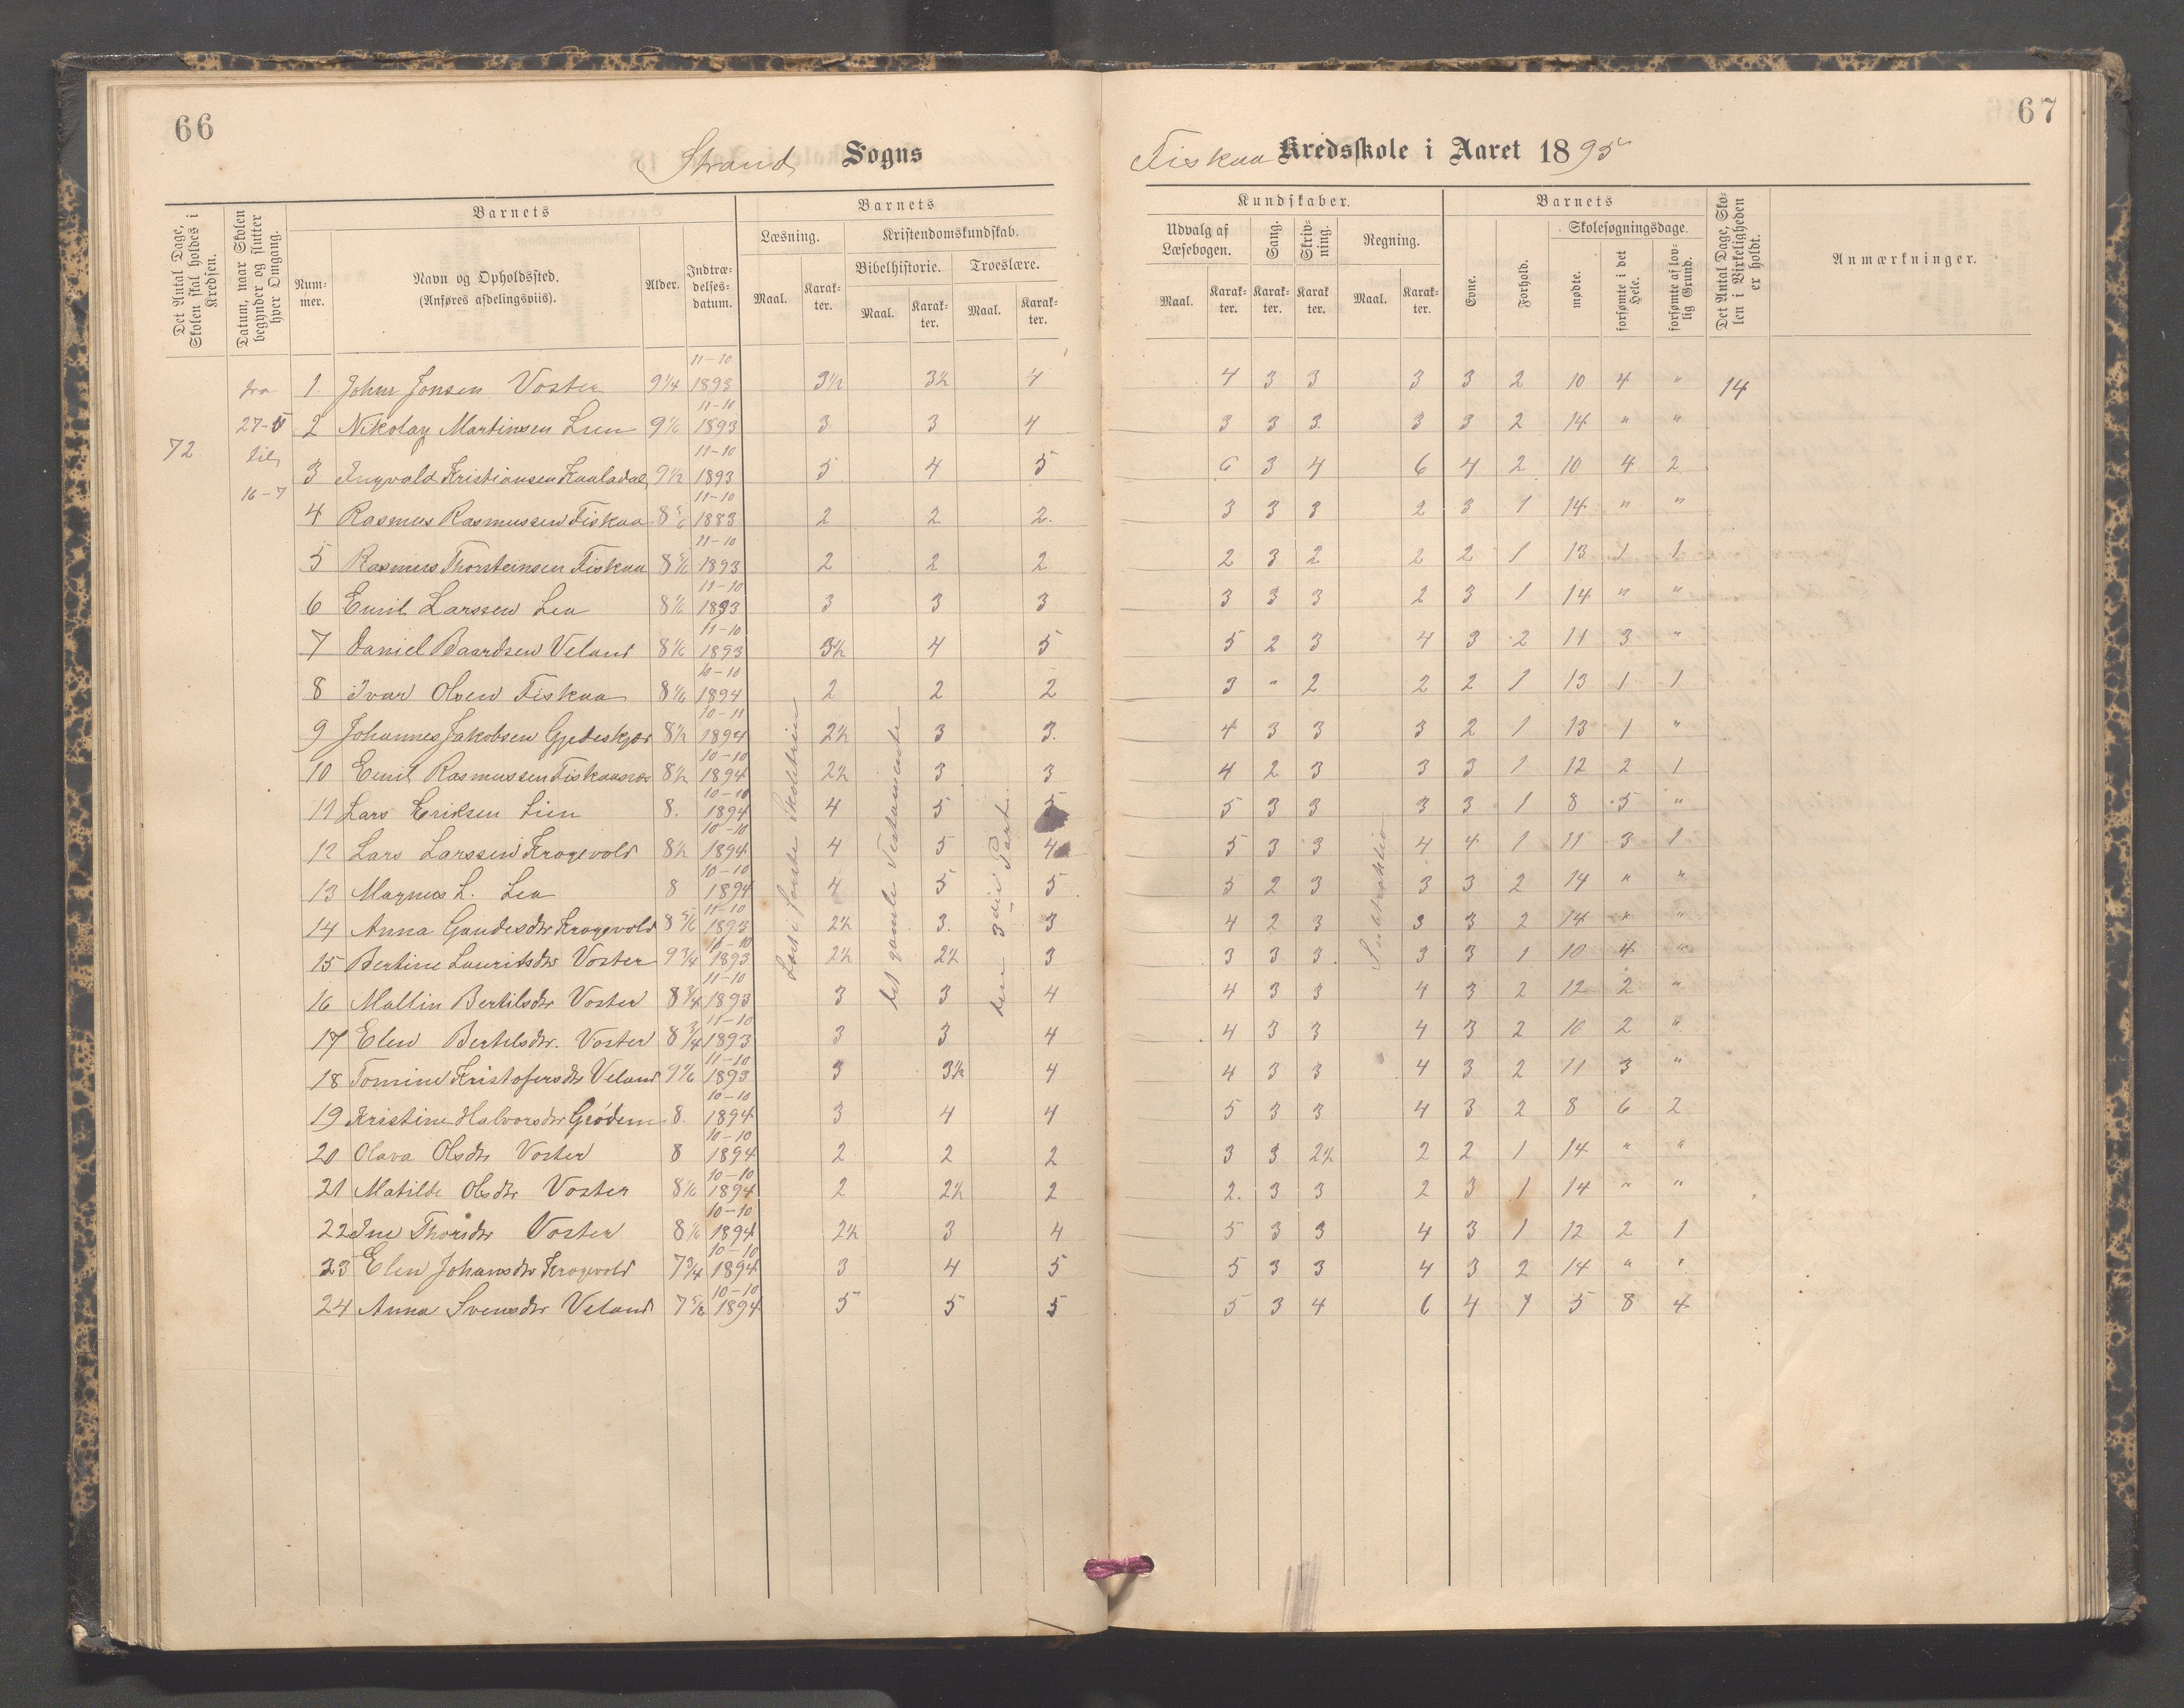 66
Strand Sogns
Det Antal Dage, Skolen skal holdes i Kredsen.
Datum, naar Skolen begynder og slutter hver Omgang.
Barnets
Num-mer.
Navn og Opholdssted.
(Anføres afdelingsviis).
Alder.
Indtræ-delses-datum.
Barnets
Læsning.
Kristendomskundskab.
Bibelhistorie.
Troeslære.
Maal. Karak-ter. Maal. Karak-ter. Maal. Karak-ter.
72
fra
27-6
til
16-7
Læse første Skoletrin
det gamle Testamente
den 3die Part
1. Johan Jonsen Voster 9 1/4 11-10 1893 3 1/2 3 1/2 4
2 Nikolay Martinsen Lien 9 1/6 11-10 1893 3 3 4
3 Ingvald Kristiansen 9 1/2 11-10 1893 5 4 5
4 Rasmus Rasmussen Fiskaa 8 5/6 11-10 1883 2 2 2.
5 Rasmus Thorsteinsen Fiskaa 8 5/6 11-10 1893 2 2 2
6 Emil Larssen Lea 8 1/6 11-10 1893 3 3 3
7 Daniel Baardsen Veland 8 1/6 11-10 1893 3 1/2 4 5
8 Ivar Olsen Fiskaa 8 1/6 10-10 1894 2 2 2
9 Johannes Jakobsen 8 1/2 10-11 1894 2 1/2 3 3.
10 Emil Rasmussen Fiskaanes 8 1/2 10-10 1894 2 1/2 3 3
11 Lars Eriksen Lien 8. 10-10 1894 4 5 5
12 Lars Larssen Krogevold 8 1/2 10-10 1894 4 5 4
13 Magnus L. Lea 8 10-10 1894 4 5 5
14 Anna Gaudesdtr Krogevold 8 5/6 11-10 1893 2 1/2 3. 3
15 Bertine Lauritsdtr Voster 9 3/4 11-10 1893 2 1/2 2 1/2 3
16 Mallin Bertilsdtr Voster 8 3/4 11-10 1893 3 3 4
17 Elen Bertelsdtr. Voster 8 3/4 11-10 1893 3 3 4
18 Tomine Kristofersdtr Veland 9 1/6 11-10 1893 3 3 1/2 4
19 Kristine Halvorsdtr Grödem 8 10-10 1894 3 4 4
20 Olava Olsdtr Voster 8 10-10 1894 2 2 2
21 Matilde Olsdtr Voster 8 1/6 10-10 1894 2 2 1/2 2
22 Ine Thorsdtr Voster 8 1/6 10-10 1894 2 1/2 3 4
23 Elen Johansdtr Krogevold 7 3/4 10-10 1894 3 4 5
24 Anna Svensdtr Veland 7 5/12 10-10 1894 5 5 5
67
Fiskaa Kredsskole i Aaret 1895
Kundskaber.
Udvalg af Læsebogen.
Sang.
Skriv-ning.
Regning.
Maal. Karak-ter. Karak-ter. Karak-ter. Maal. Karak-ter.
Barnets
Evne.
Forhold.
Skolesøgningsdage.
mødte.
forsømte i det Hele.
forsømte af lov-lig Grund.
Det Antal Dage, Sko-len i Virkeligheden er holdt.
Anmærkninger.
Subtraktion
4 3 3 3 3 2 10 4 " 14
3 3 3. 3 3 2 14 " "
6 3 4 6 4 2 10 4 2
3 3 3 2 3 1 14 " "
2 3 2 2 2 1 13 1 1
3 3 3 2 3 1 14 " "
5 2 3 4 3 2 11 3 "
3 " 2 2 2 1 13 1 1
4 3 3 3 2 1 13 1 "
4 2 3 3 3 1 12 2 1
5 3 3 3 3 1 8 5 "
5 3 3 4 4 1 11 3 1
5 2 3 3 3 2 14 " "
4 2 3 3 3 2 14 " "
3 3 3. 3 3 1 10 4 "
4 3 3 4 3 2 12 2 "
4 3 3 4 3 2 10 2 "
4 3 3 4 3 2 11 3 "
5 3 3 4 3 2 8 6 2
3 3 2 1/2 2 2 1 14 " "
2. 3 3 2 3 1 14 " "
5 3 3 4 3 1 12 2 1
5 3 3 4 3 2 14 " "
5 3 4 6 4 1 5 8 4